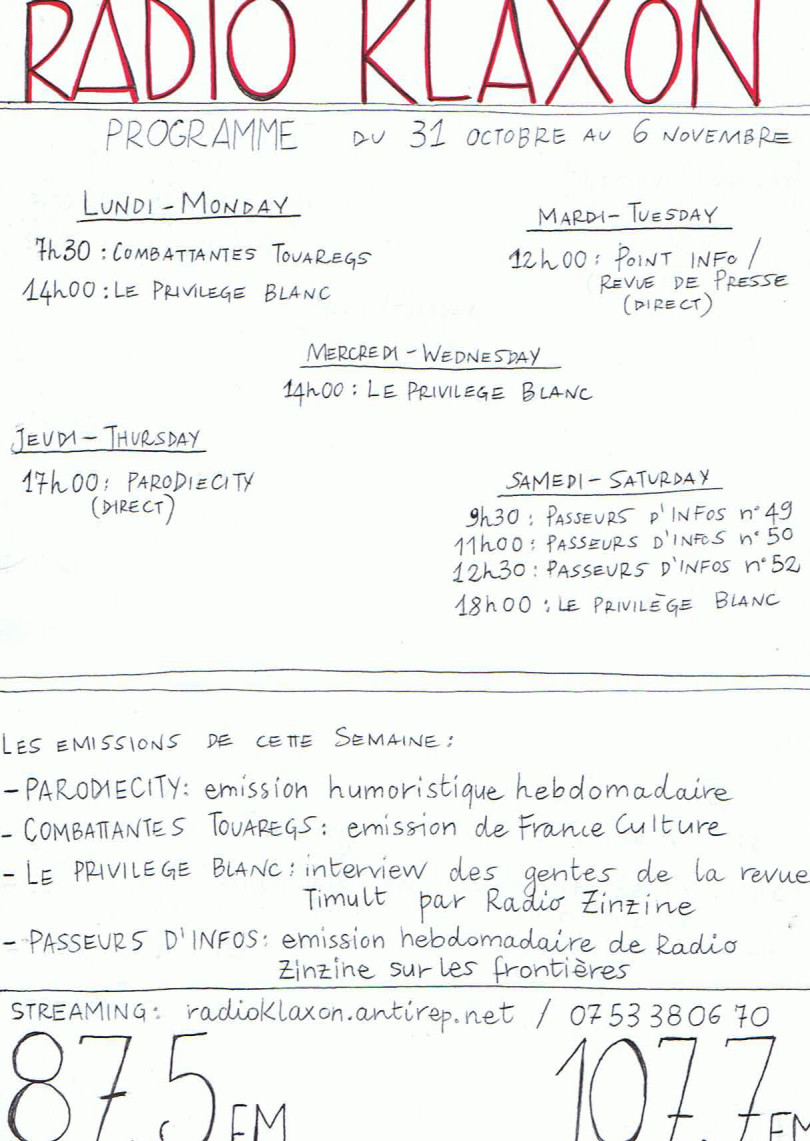 RADIO KLAXON
PROGRAMME DU 31 OCTOBRE AU 6 NOVEMBRE
LUNDI - MONDAY
7h30 : COMBATTANTES TOUAREGS
14h00 : LE PRIVILEGE BLANC
MARDI - TUESDAY
12h00 : POINT INFO /
REVUE DE PRESSE
(DIRECT)
MERCREDI - WEDNESDAY
14h00 : LE PRIVILEGE BLANC
JEUDI - THURSDAY
17h00 : PARODIECITY
(DIRECT)
SAMEDI - SATURDAY
9h30 : PASSEURS D'INFOS n°49
11h00 : PASSEURS D'INFOS n°50
12h30 : PASSEURS D'INFOS n°52
18h00 : LE PRIVILÈGE BLANC
LES EMISSIONS DE CETTE SEMAINE :
- PARODIECITY : emission humoristique hebdomadaire
- COMBATTANTES TOUAREGS : emission de France Culture
- LE PRIVILEGE BLANC : interview des gentes de la revue
Timult par Radio Zinzine
- PASSEURS D'INFOS : emission hebdomadaire de Radio
Zinzine sur les frontières
STREAMING : radioklaxon.antirep.net / 07 53 38 06 70
87.5 FM 107.7 FM